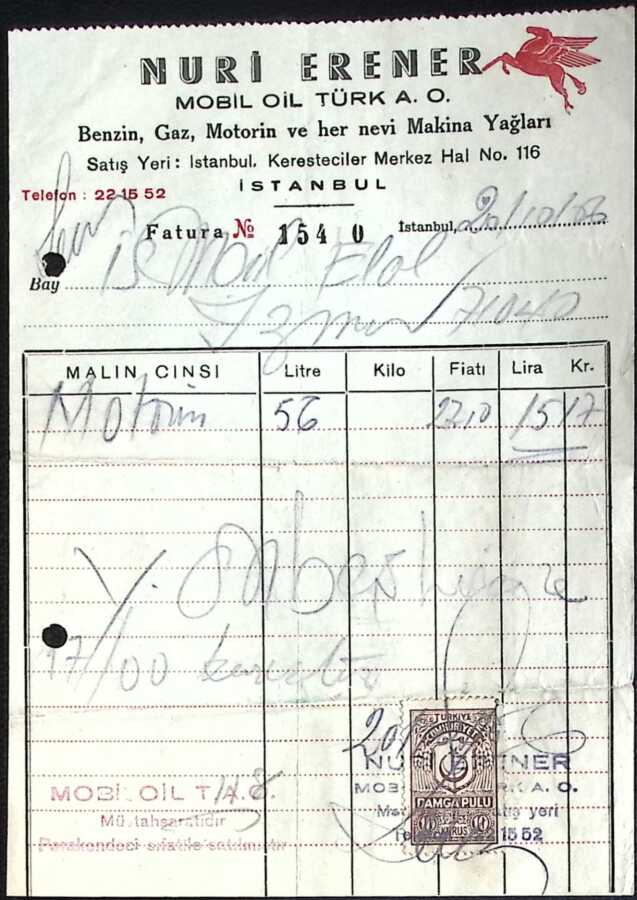 NURİ ERENER
MOBİL OİL TÜRK A. O.
Benzin, Gaz, Motorin ve her nevi Makina Yağları
Satış Yeri: Istanbul, Keresteciler Merkez Hal No. 116
Telefon : 22 15 52
İSTANBUL
Fatura № 1540
Istanbul, 20/10/66
Bay
İzmir
MALIN CINSI Litre Kilo Fiatı Lira Kr.
Motorin 56 2710 15 17
17/00
TÜRKİYE
CUMHURİYETİ
NURİ ERENER
MOBİL OİL TÜRK A. O.
DAMGA PULU
satış yeri
10 KURUŞ 10
Telefon 22 15 52
MOBİL OİL T.A.O.
Müstahzaratıdır
Perakendeci sıfatile satılmıştır